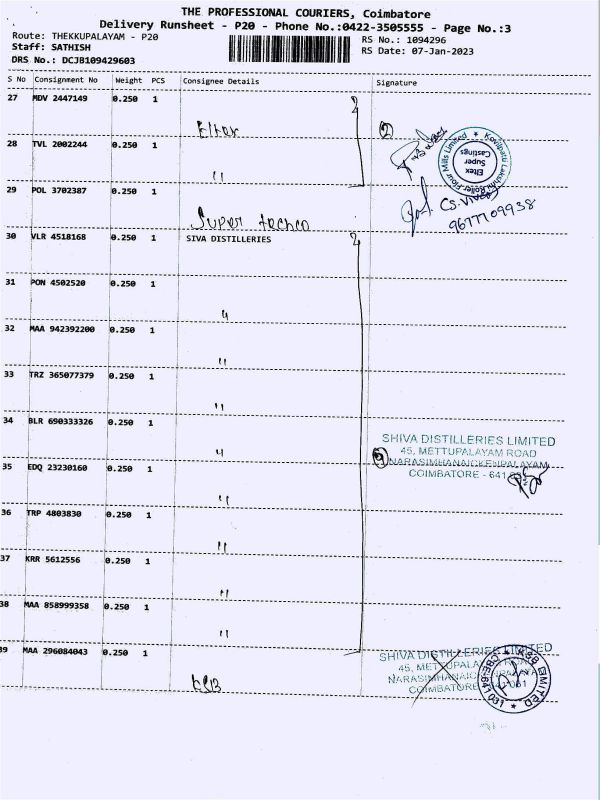 THE PROFESSIONAL COURIERS, Coimbatore
Delivery Runsheet - P20 - Phone No.:0422-3505555 - Page No.:3
Route: THEKKUPALAYAM - P20
RS No.: 1094296
Staff: SATHISH
RS Date: 07-Jan-2023
DRS No.: DCJB109429603
S No Consignment No Weight PCS Consignee Details Signature
27 MDV 2447149 0.250 1
Eltek
28 TVL 2002244 0.250 1
"
Kovilpatti Lakshmi Roller Flour Mills Limited
Eltek
Super
Castings
29 POL 3702387 0.250 1
CS. Vivek
9677109938
Super techco
30 VLR 4518168 0.250 1 SIVA DISTILLERIES
31 PON 4502520 0.250 1
"
32 MAA 942392200 0.250 1
"
33 TRZ 365077379 0.250 1
"
34 BLR 690333326 0.250 1
"
SHIVA DISTILLERIES LIMITED
45, METTUPALAYAM ROAD
NARASIMHANAICKENPALAYAM
COIMBATORE - 641
35 EDQ 23230160 0.250 1
"
36 TRP 4803830 0.250 1
"
37 KRR 5612556 0.250 1
"
38 MAA 858999358 0.250 1
"
39 MAA 296084043 0.250 1
KSB
SHIVA DISTILLERIES LIMITED
45, METTUPALA ROAD
NARASIMHANAIC NPALAYA
COIMBATORE 641 031
KSB LIMITED
CBE-641 031